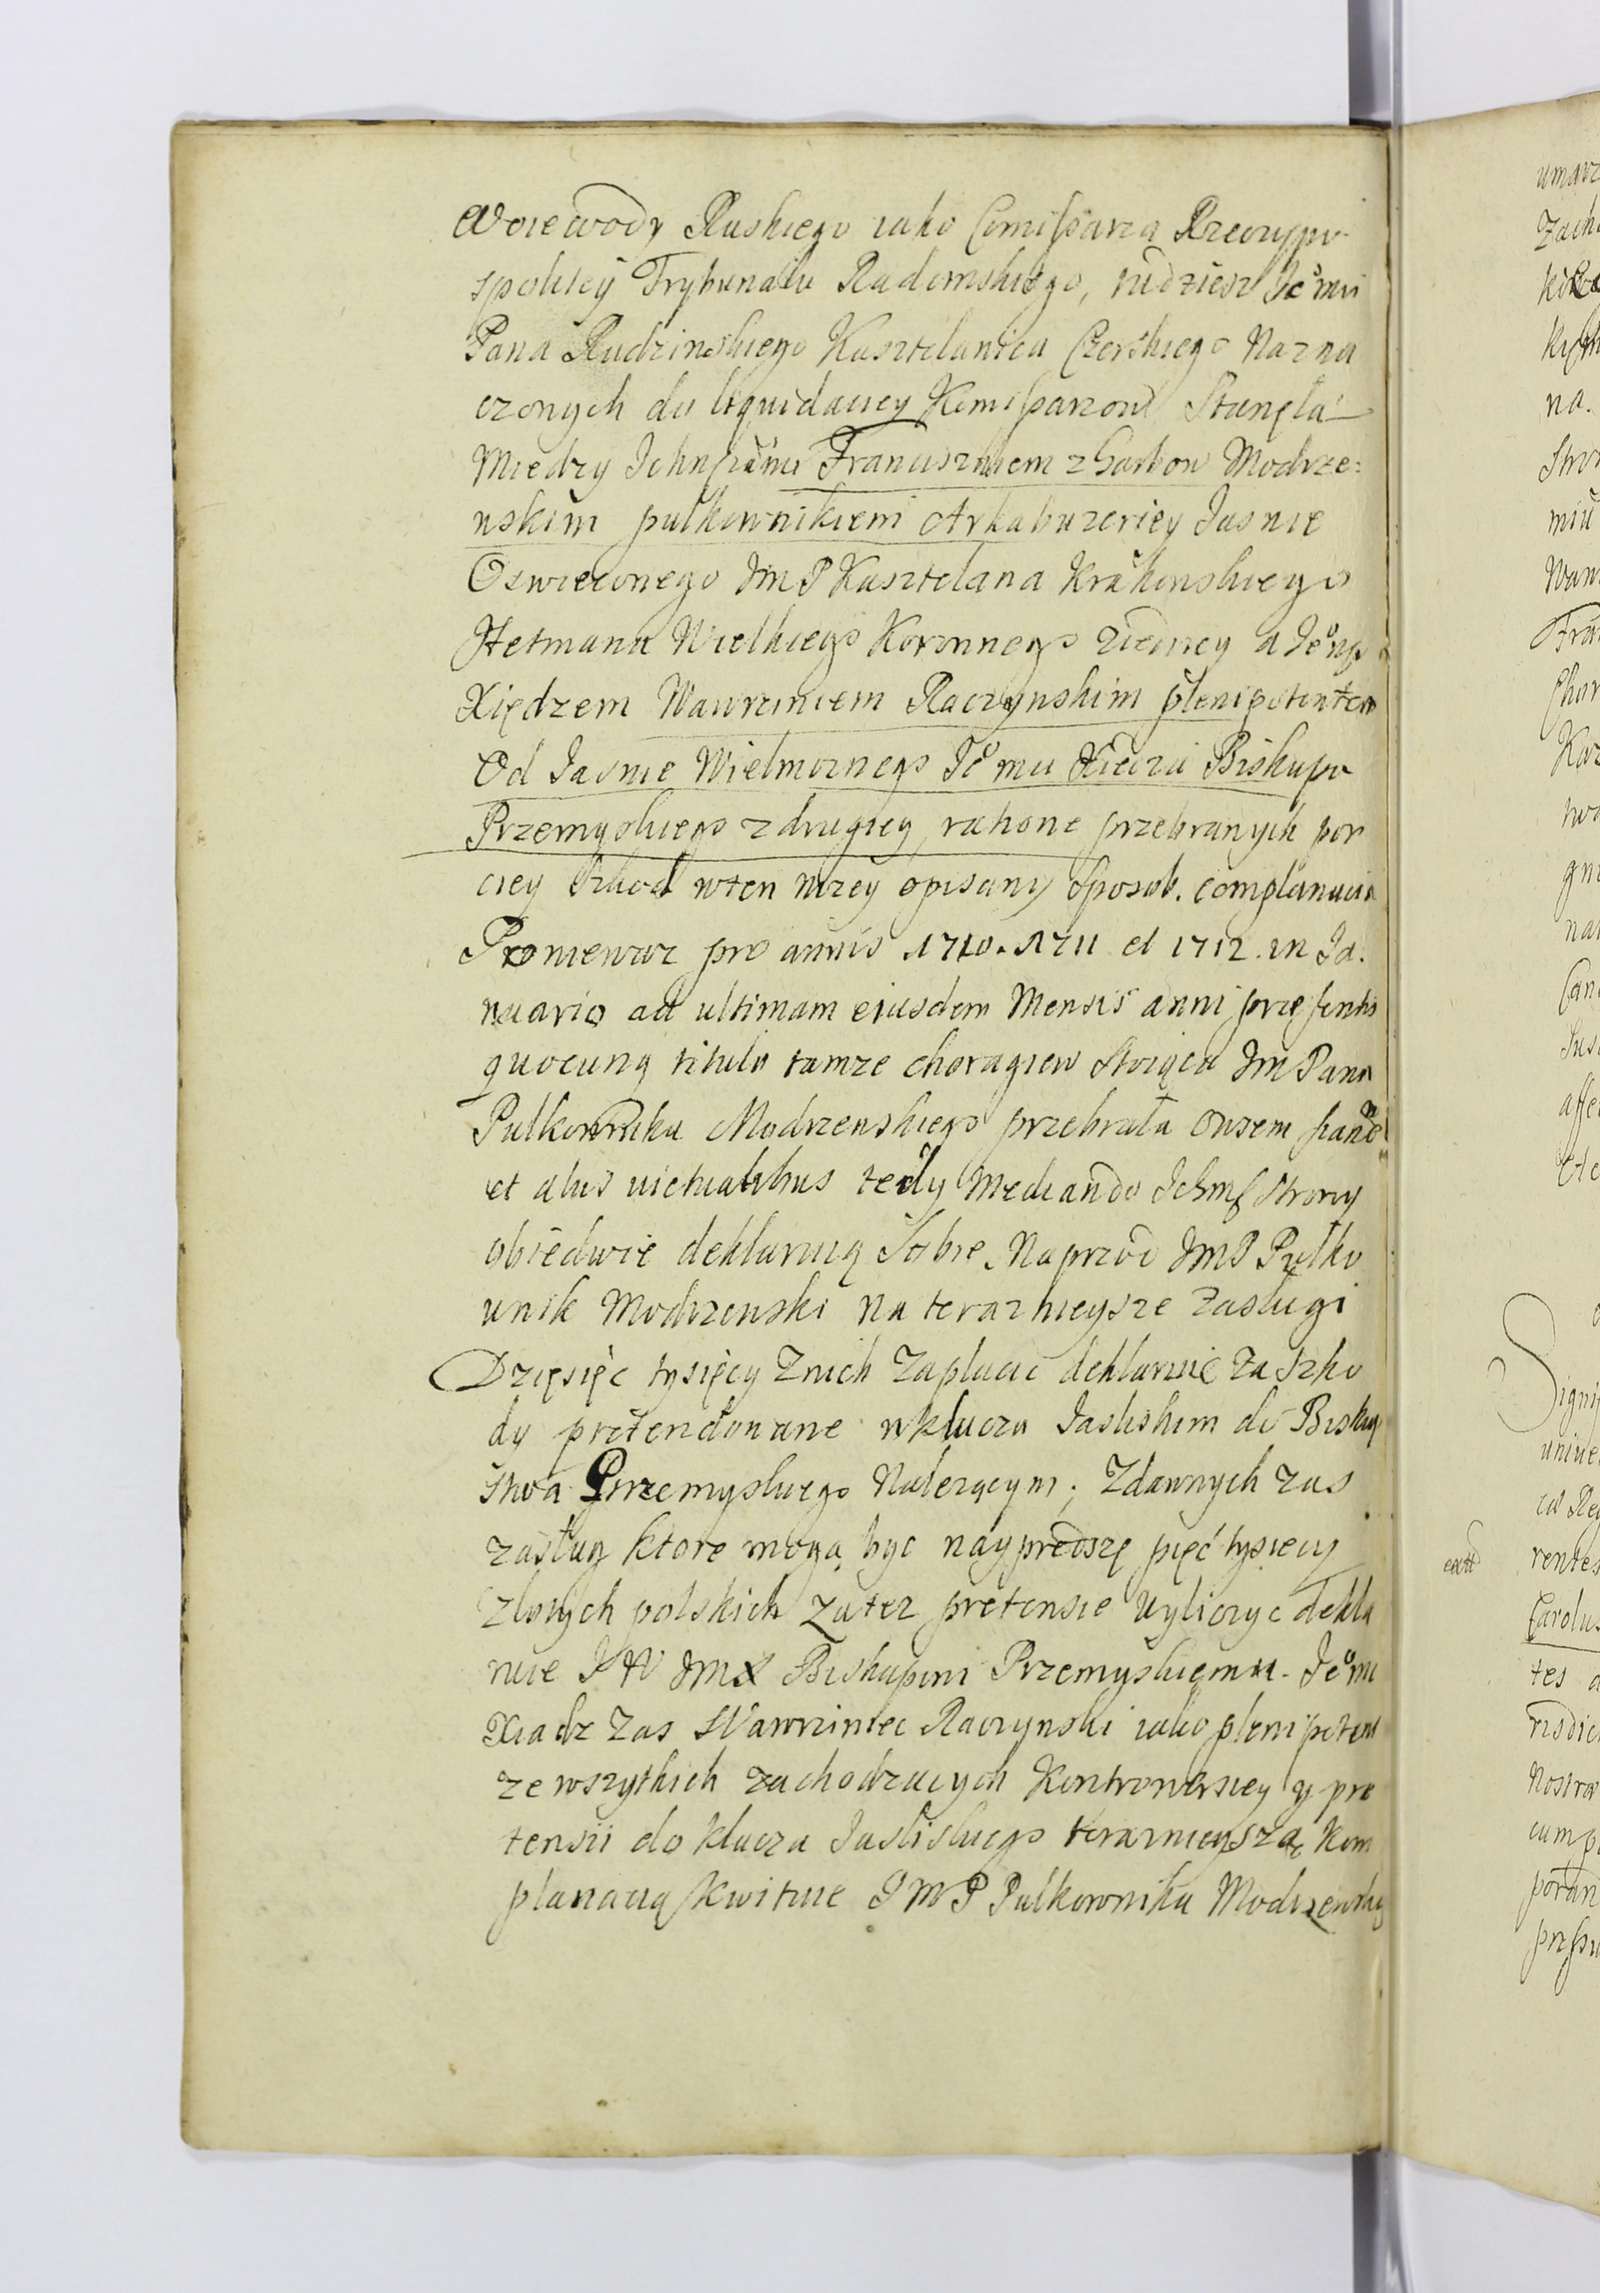 Woiewody Ruskiego iako Comißarza Rzeczypo-
spolitey Trybunału Radomskiego, tudziesz Jº mci
Pana Rudzinskiego Kasztelanica Czerskiego Nazna
czonych do liquidacyey Komißarzow Stanęła
Miedzy Ichmściami Franciszkiem z Garbow Modrze=
wskim pułkownikiem Arkabuzeriey Iasnie
Oswieconego JmP Kasztelana Krakowskiego
Hetmana Wielkiego Koronnego z iedney a Jeº mcią
Xiędzem Wawrzincem Raczynskim plenipotentem
Od Iasnie Wielmoznego Jeº mci Xiedza Biskupa
Przemyskiego z drugiey, ratione przebranych por
cyey Szkod wten nizey opisany Sposob. complanacia
Poniewaz pro annis 1710. 1711 et 1712. in Ja.
nuario ad ultimam eiusdem Mensis anni præsentis
quocunq titulo tamze choragiew Stoiąca Jm Pana
Pułkownika Modrzewskiego przebrała owsem pane
et aliis victualibus tedy Mediando Ichmß Strony
obiedwie deklaruią Sobie. Naprzod JmP Pułko
wnik Modrzewski na teraznieysze Zasługi
Dzięsięc tysięcy Znich Zapłacic deklaruie za Szko
dy pretendowane w kluczu Iasliskim do Biskup
stwa Przemyskiego Należącym; Zdawnych zas
zasług ktore mogą byc nayprędszę pięć tysięcy
Złotych polskich Zatez pretensie Wyliczyc dekla
ruie J W JmX Biskupowi Przemyskiemu. Jeº mci
Xiadz Zas Wawrziniec Raczynski iako plenipotent
ze wszytkich zachodzących Kontrowersiey y pre
tensii do klucza Iasliskiego teraznieyszą Kom
planacią Kwituie JMP Pułkownika Modrzewskieg